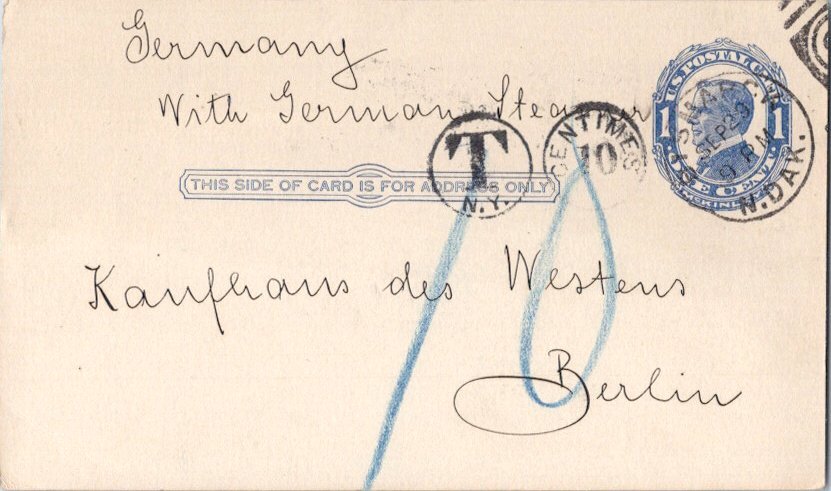 Germany
With German Steamer
U.S. POSTAL CARD
1 1
ONE CENT
McKINLEY
BISMARCK
SEP 29
9 PM
N.DAK.
T
N.Y.
CENTIMES
10
THIS SIDE OF CARD IS FOR ADDRESS ONLY
10
Kaufhaus des Westens
Berlin